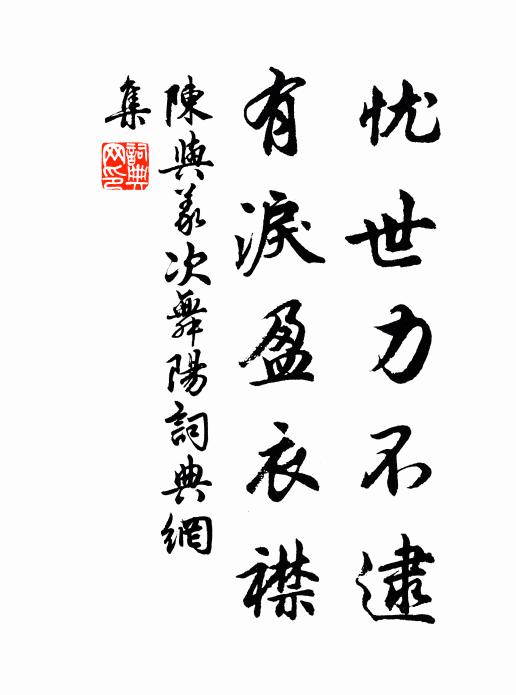 忧世力不逮
有淚盈衣襟
陳與義次舞陽詞典網
集
詞典
网印